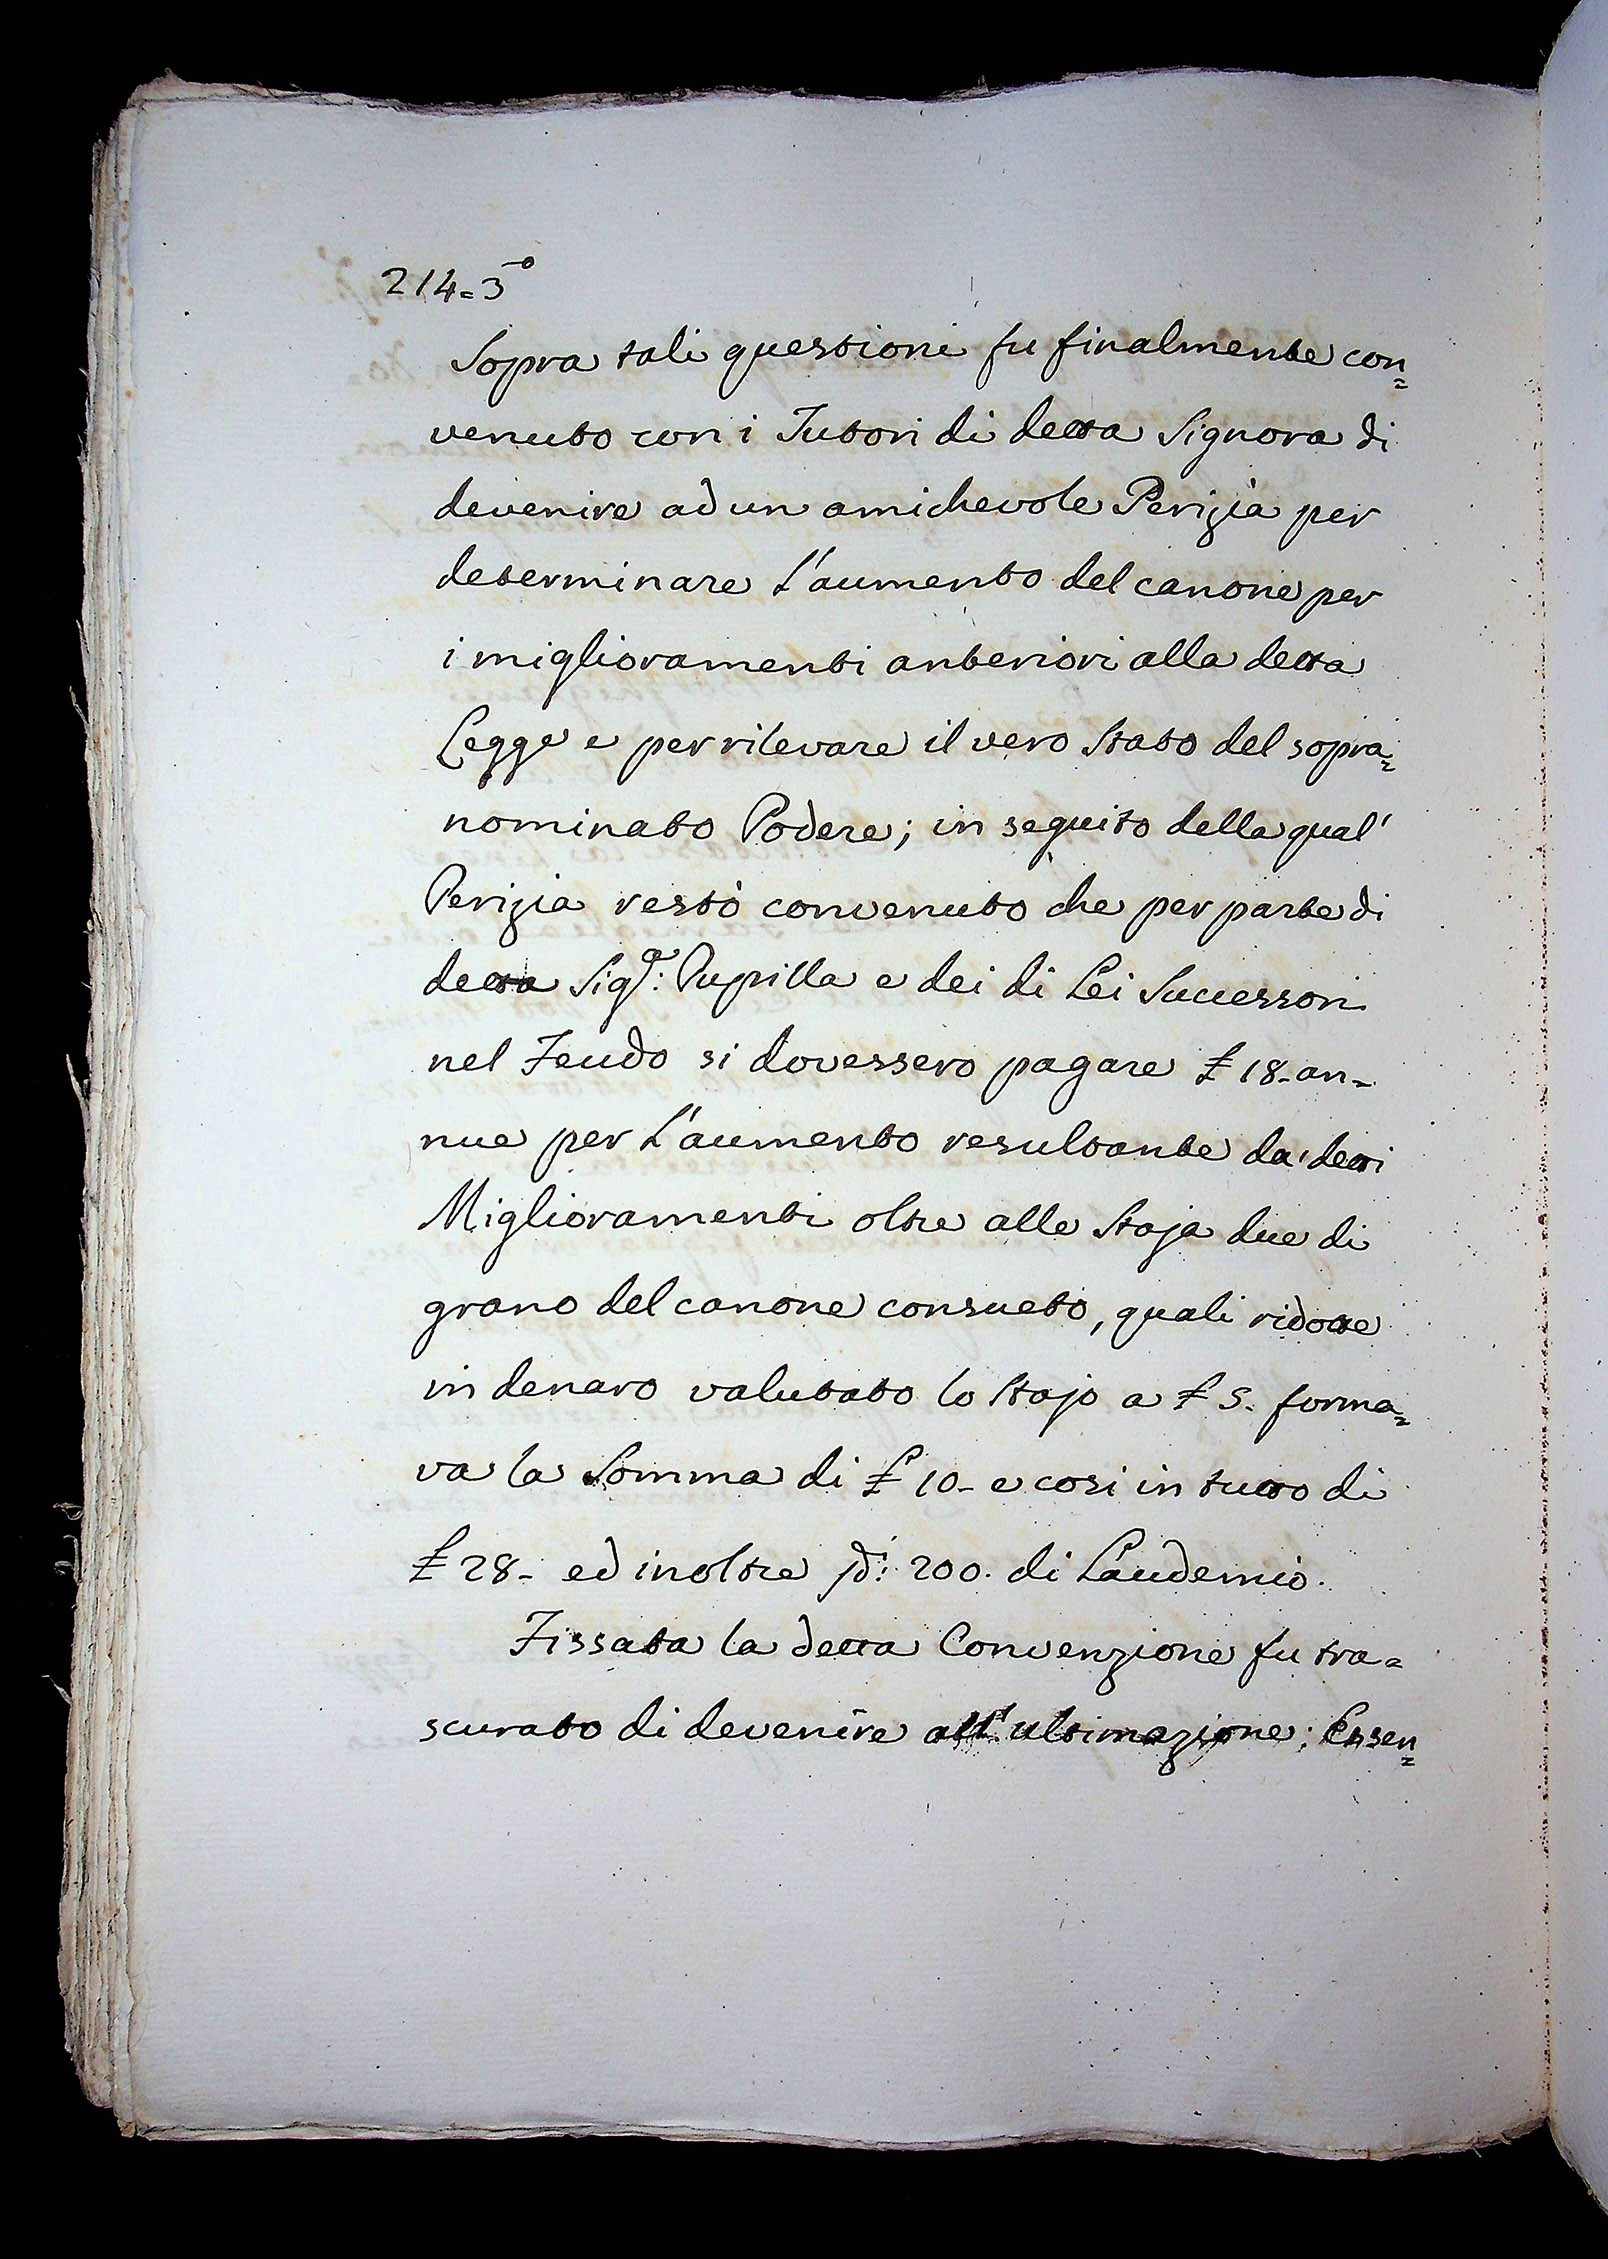 214=3º
Sopra tali questioni fu finalmente con=
venuto con i Tutori di detta Signora di
devenire ad un amichevole Perizia per
determinare l'aumento del canone per
i miglioramenti anteriori alla detta
Legge e per rilevare il vero Stato del sopra=
nominato Podere; in seguito della qual'
Perizia restò convenuto che per parte di
detta Sigª: Pupilla e dei di Lei Successori
nel Feudo si dovessero pagare £ 18- an=
nue per l'aumento resultante da' detti
Miglioramenti oltre alle Staja due di
grano del canone consueto, quali ridotte
in denaro valutato lo Stajo a £ 5. forma=
va la Somma di £ 10- e cosi in tutto di
£ 28- ed inoltre 200. di Laudemio.
Fissata la detta Convenzione fu tra=
scurato di devenire all'ultimazione; Essen=